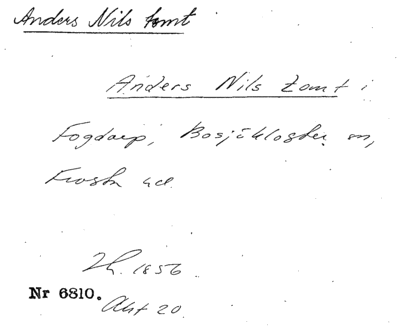 Anders Nils tomt
Anders Nils tomt i
Fogdarp, Bosjökloster sn,
Frosta hd.
Lh. 1856.
Nr 6810.
Akt 20.